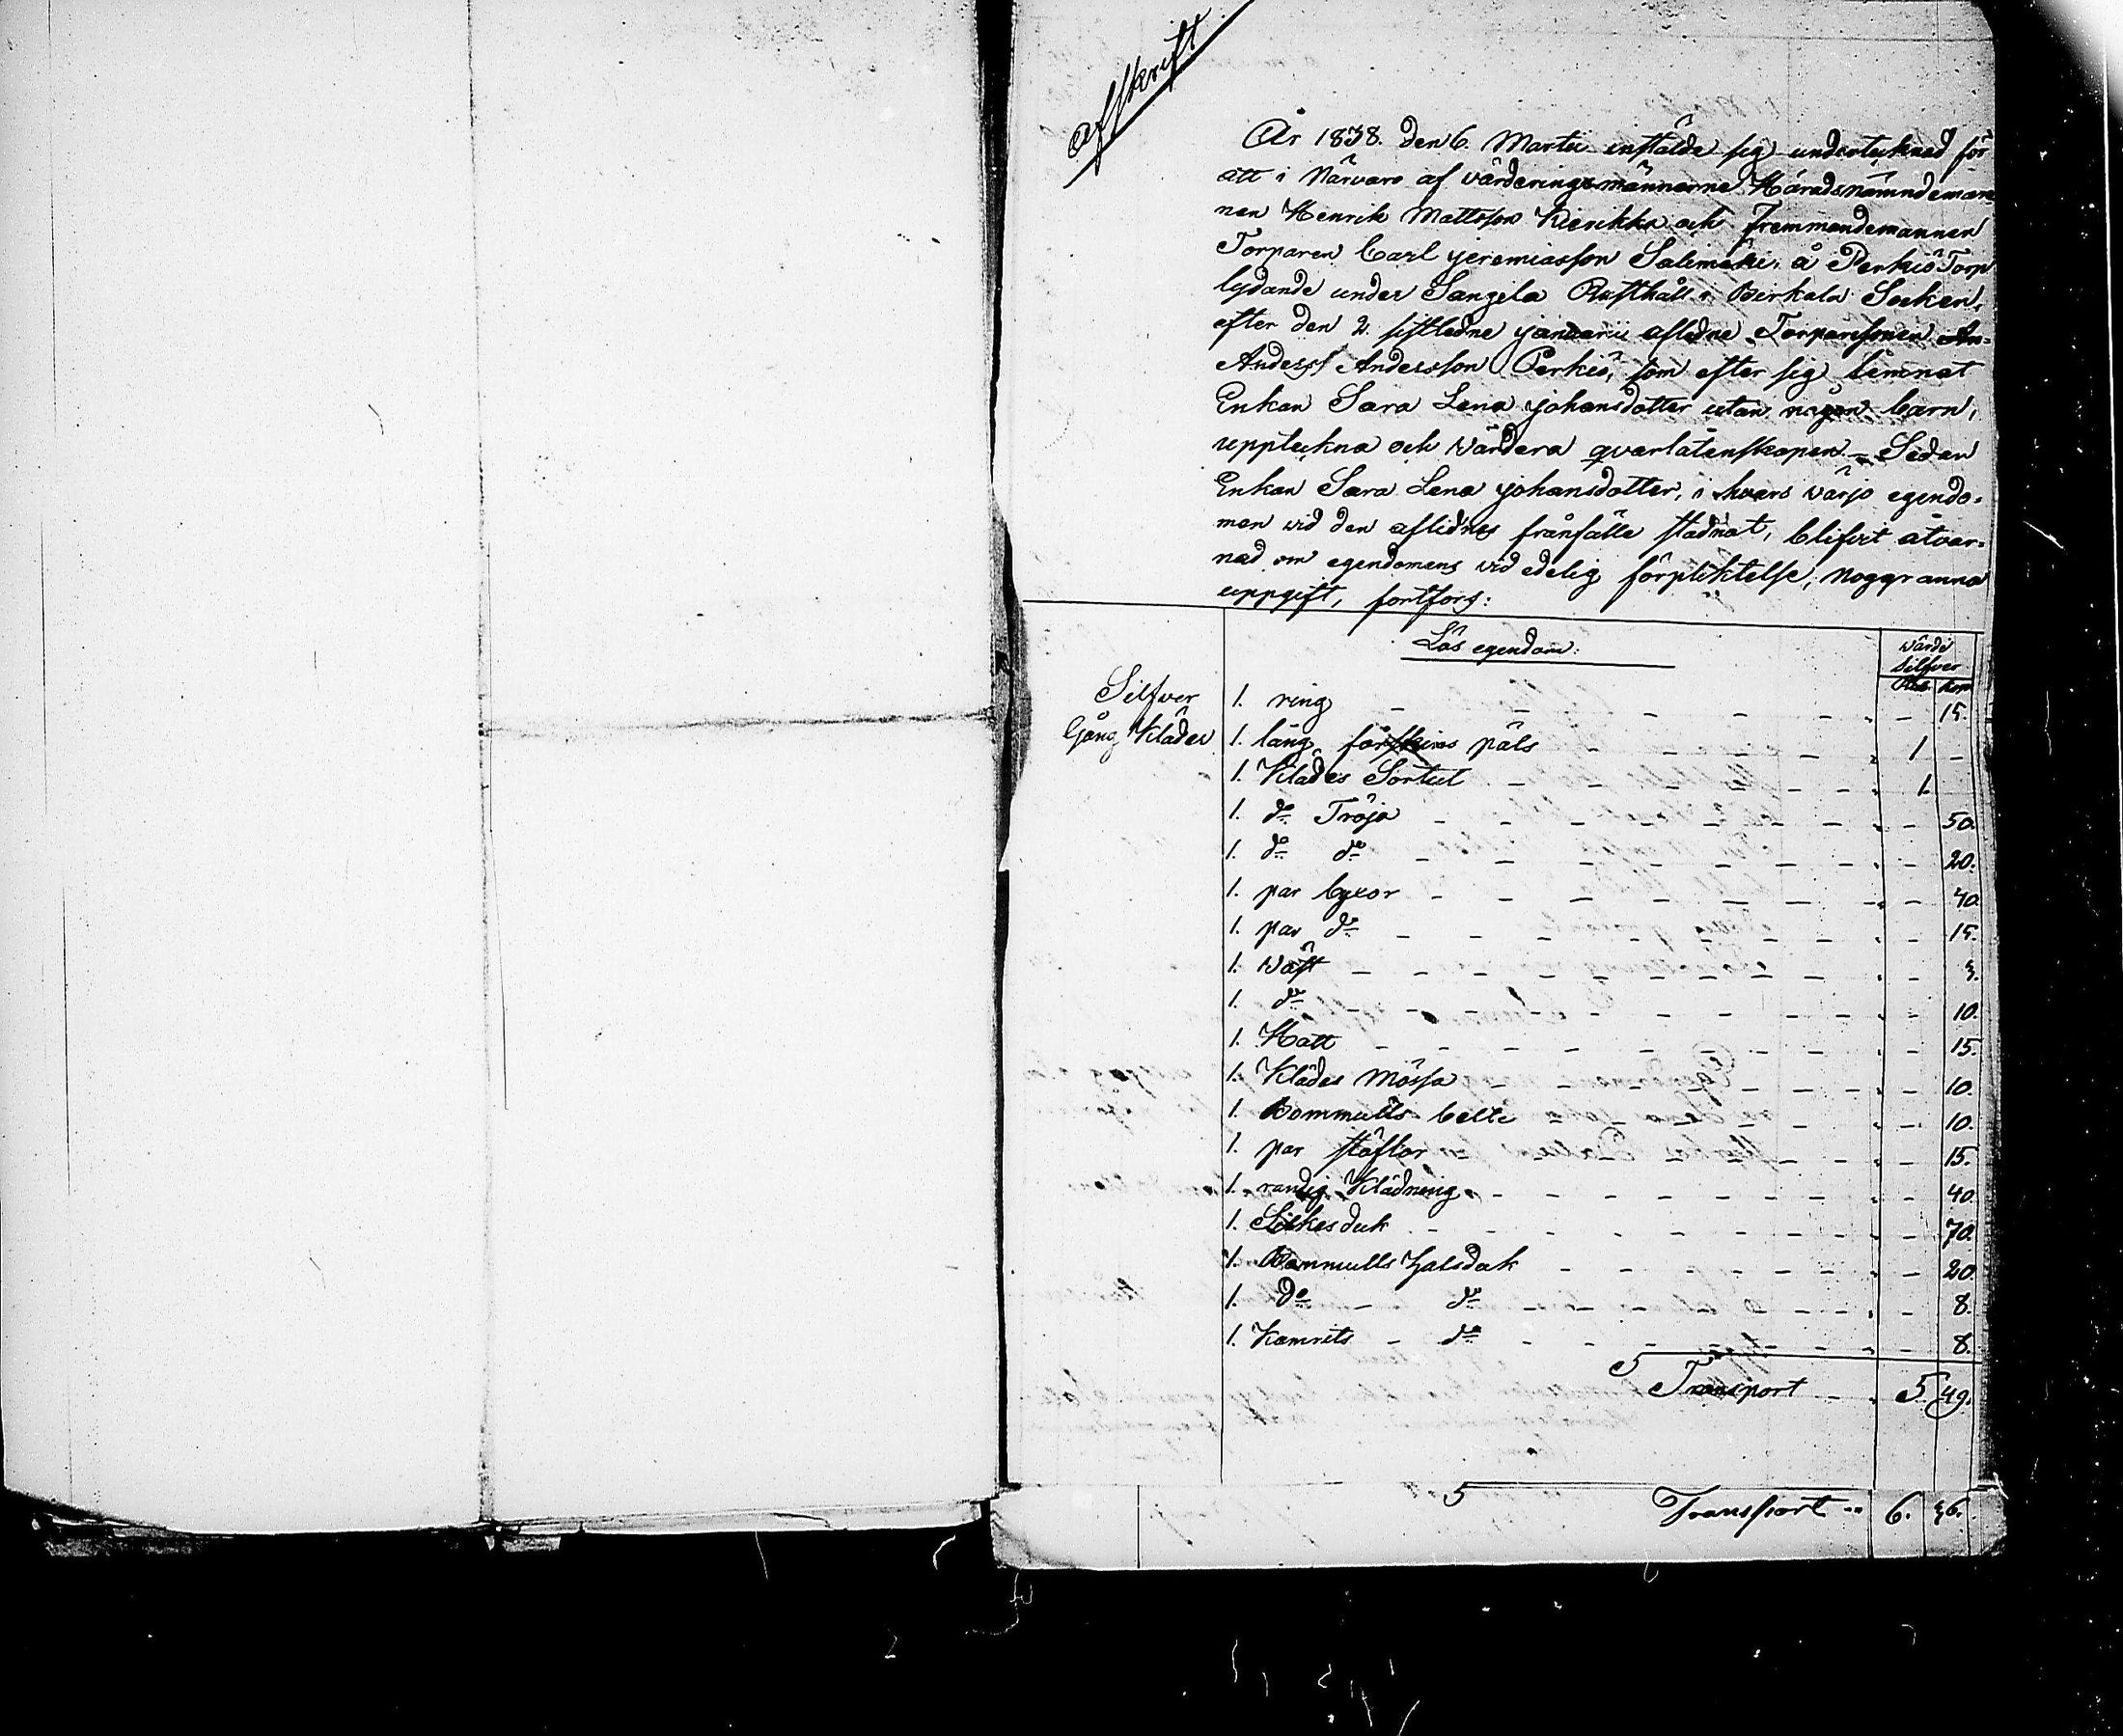 Afskrift
År 1838. den 6. Martii instälde sig undertecknad för
att i närvaro af värderingsmännerne Häradsnämndeman
nen Henrik Mattsson Kierikka och Fremmandemannen
Torparen Carl Jeremiasson Salimäki, å Perkiö Torp
lydande under Sangila Rusthåll i Birkala Socken,
efter den 2. sistledne Januarii aflidne Torparesonen An=
Anderss Andersson Perkiö, som efter sig lemnat
Enkan Sara Lena Johansdotter utan någon barn,
uppteckna och värdera qvarlåtenskapen. – Sedan
Enkan Sara Lena Johansdotter, i hvars värjo egendo=
men vid den aflidnes frånfälle stadnat, blifvit åtvar=
nad om egendomens vid edelig förpliktelse, noggranna
uppgift, fortfors:
Lös egendom: Värde
Silfver
Rub. kop.
Silfver 1. ring – 15.
Gång Kläder 1. lång fårskins päls 1 –
1. Klädes Sortut 1.
1. do Tröja – 50.
1. do do – 20.
1. par byxor – 40.
1. par do – 15.
1. Väst – 3.
1. do – 10.
1. Hatt – 15.
1. Klädes Mössa – 10.
1. Bommulls belte – 10.
1. par stöflor – 15.
1. randig Klädning – 40.
1. Silkesduk – 70.
1. Bommulls halsduk – 20.
1. do – do – 8.
1. Kamrits – do – 8.
Transport 5. 49.
Transport 6. 36.